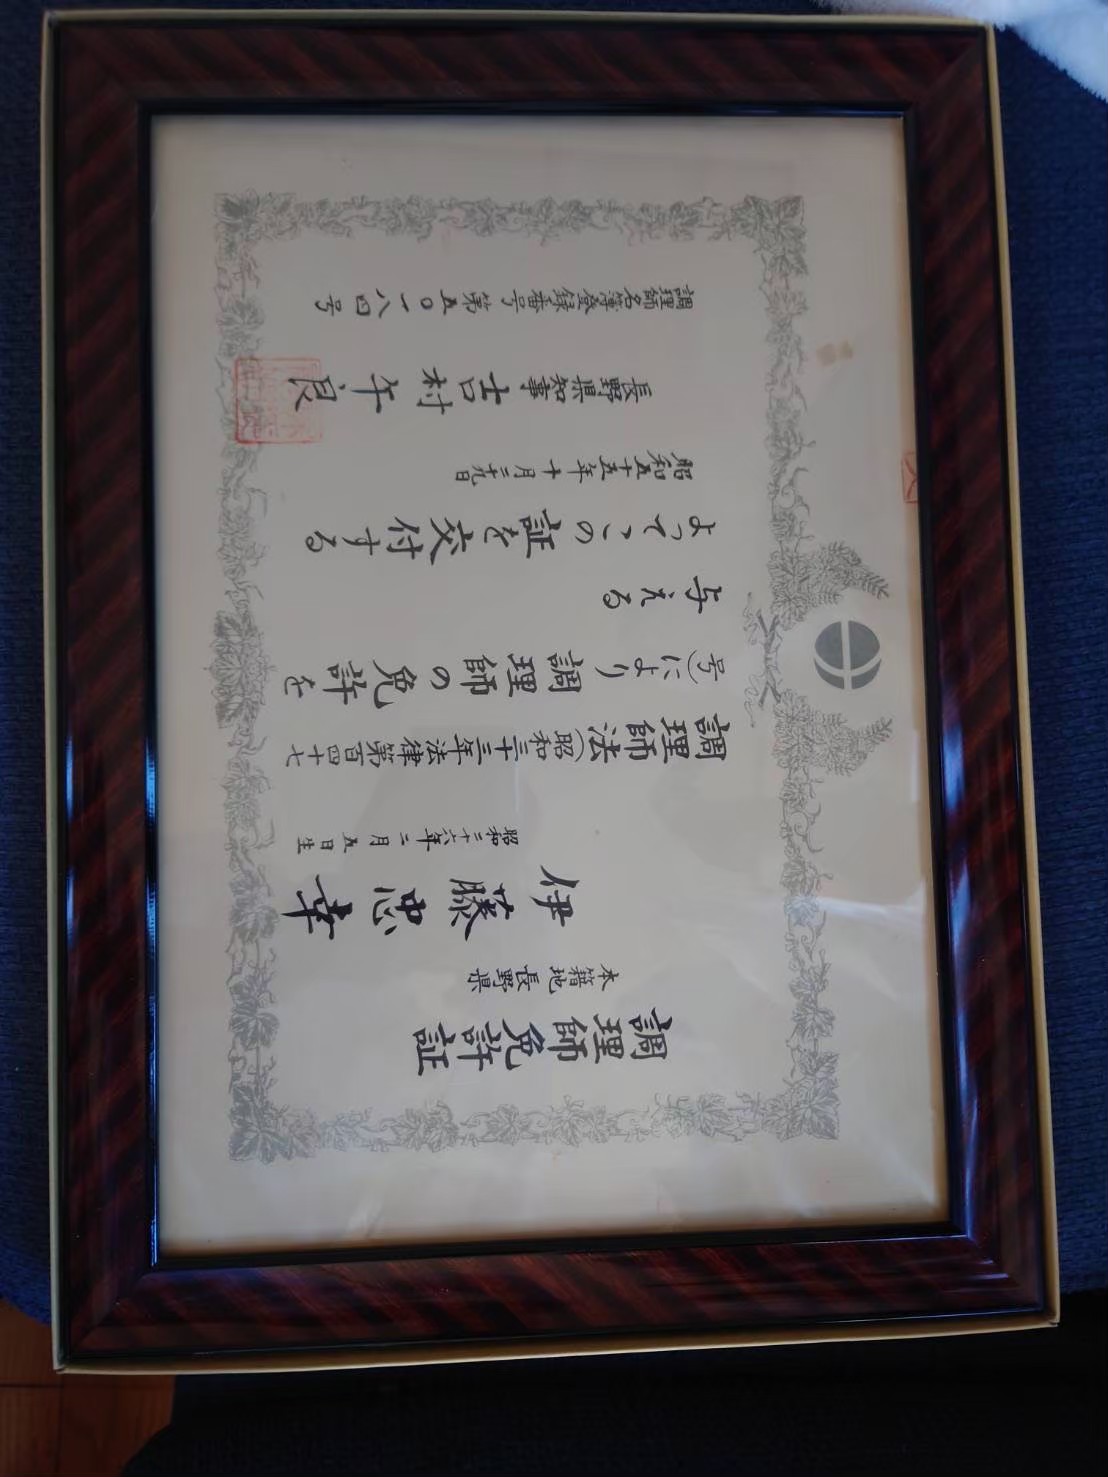 調理師免許証
本籍地 長野県
伊藤忠幸
昭和三十六年二月五日生
調理師法(昭和三十三年法律第百四十七
号)により調理師の免許を
与える
よってこの証を交付する
昭和五十五年十月二十九日
長野県知事 吉村午良
調理師名簿登録番号第五〇一八四号